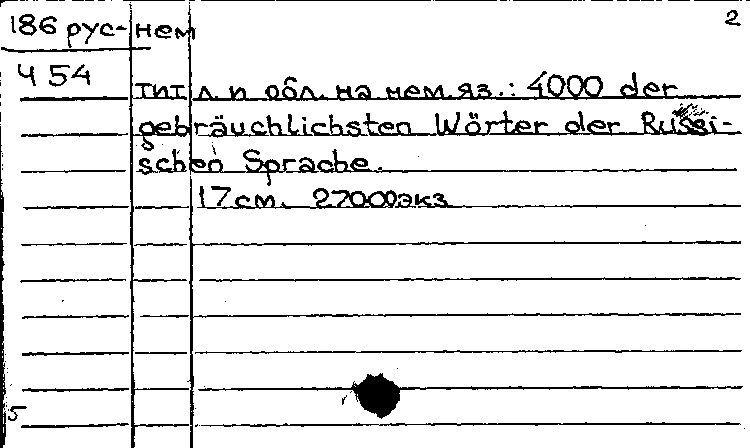 186 рус-нем
2
Ч 54
тит л и обл. на нем. яз.: 4000 der
gebräuchlichsten Wörter der Russi-
schen Sprache.
17 см. 27000 экз
5